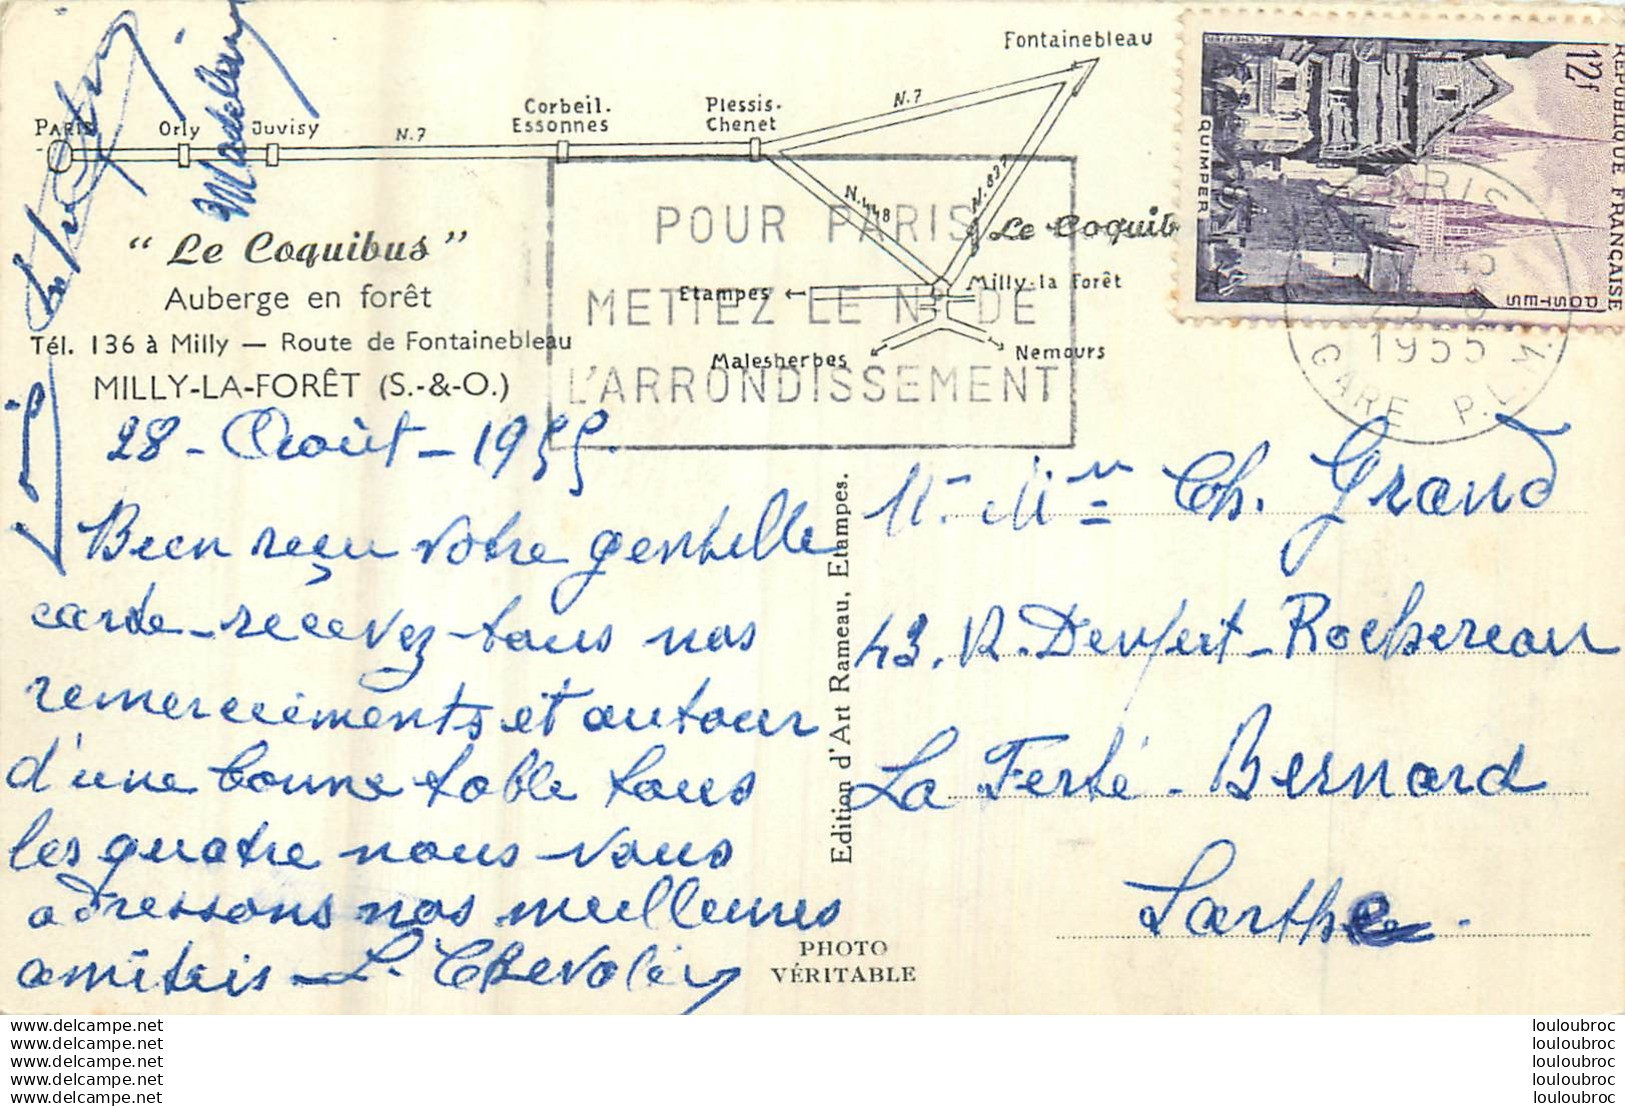 Fontainebleau
PARIS
Orly
Juvisy
N.7
Corbeil-
Essonnes
Plessis-
Chenet
N.7
N.448
N.837
Le Coquib
Milly-la forêt
Etampes
Malesherbes
Nemours
Madeleine
" Le Coquibus "
Auberge en forêt
Tél. 136 à Milly — Route de Fontainebleau
MILLY-LA-FORÊT (S.-&-O.)
POUR PARIS
METTEZ LE N° DE
L'ARRONDISSEMENT
12f
REPUBLIQUE FRANÇAISE
POSTES
QUIMPER
PARIS
1955
GARE P.L.M.
28 - Août - 1955.
Bien reçu votre gentille
carte - recevez tous nos
remerciements et autour
d'une bonne table tous
les quatre nous vous
adressons nos meilleures
amitiés - L. Chevolé
Edition d'Art Rameau, Etampes.
PHOTO
VÉRITABLE
Mr Mme Ch. Grand
43. R. Denfert-Rochereau
La Ferté-Bernard
Sarthe.
www.delcampe.net
www.delcampe.net
www.delcampe.net
www.delcampe.net
www.delcampe.net
louloubroc
louloubroc
louloubroc
louloubroc
louloubroc